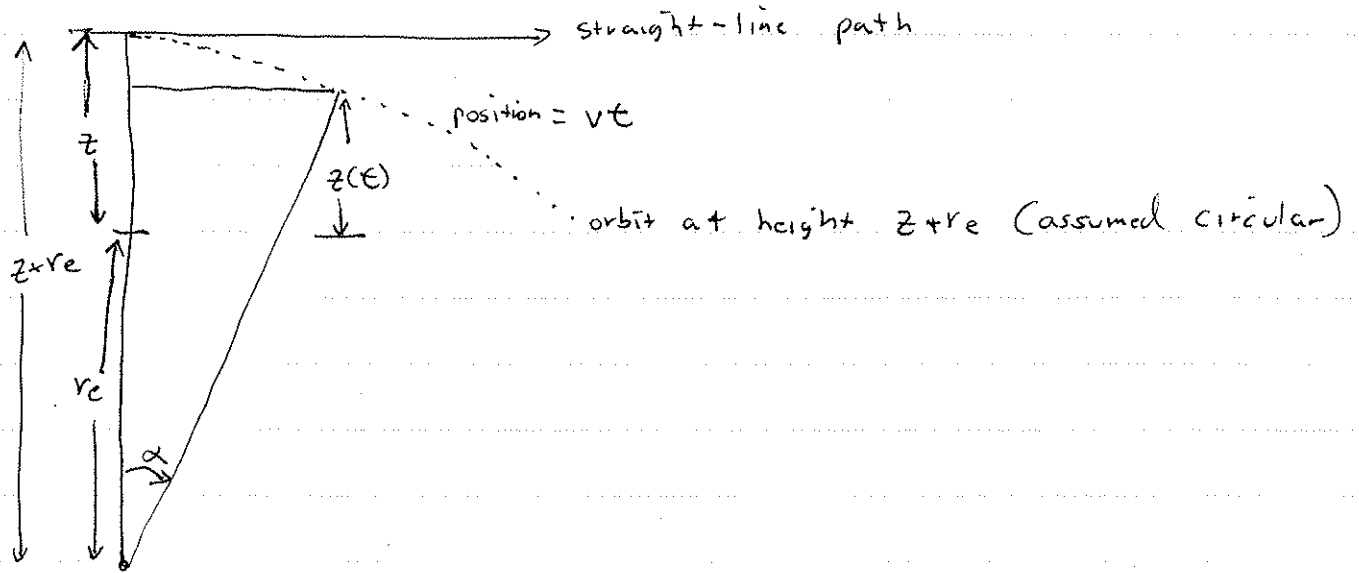 straight-line path
z
position = vt
z(t)
orbit at height z+re (assumed circular)
z+re
re
α